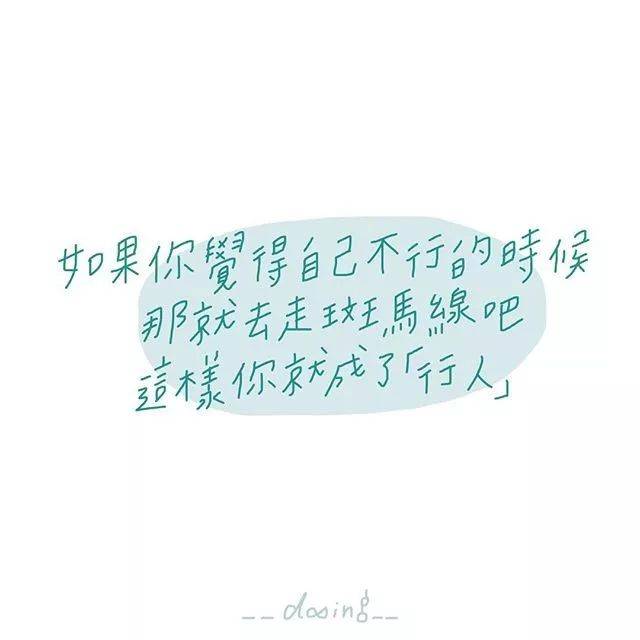 如果你覺得自己不行的時候
那就去走斑馬線吧
這樣你就成了「行人」
__dosing__